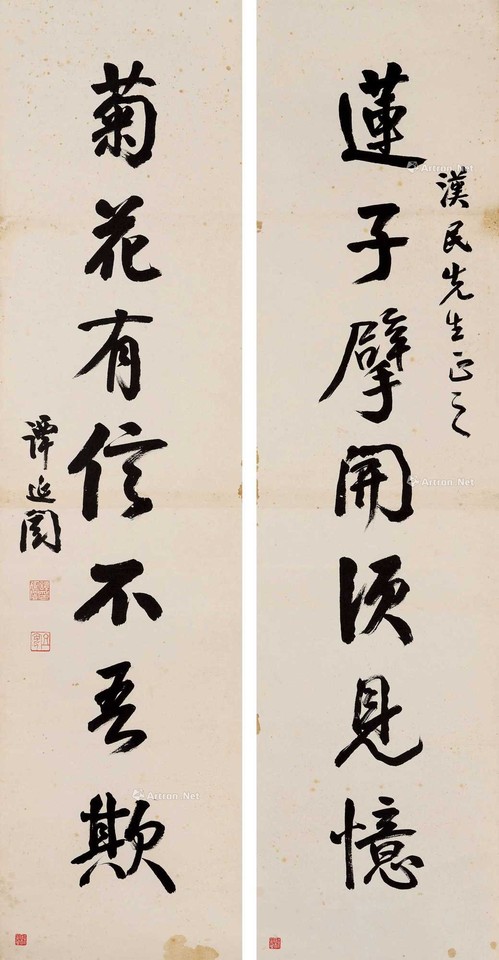 漢民先生正之
蓮子擘開須見憶
菊花有信不吾欺
譚延闓
Artron.Net
Artron.Net
Artron.Net
Artron.Net